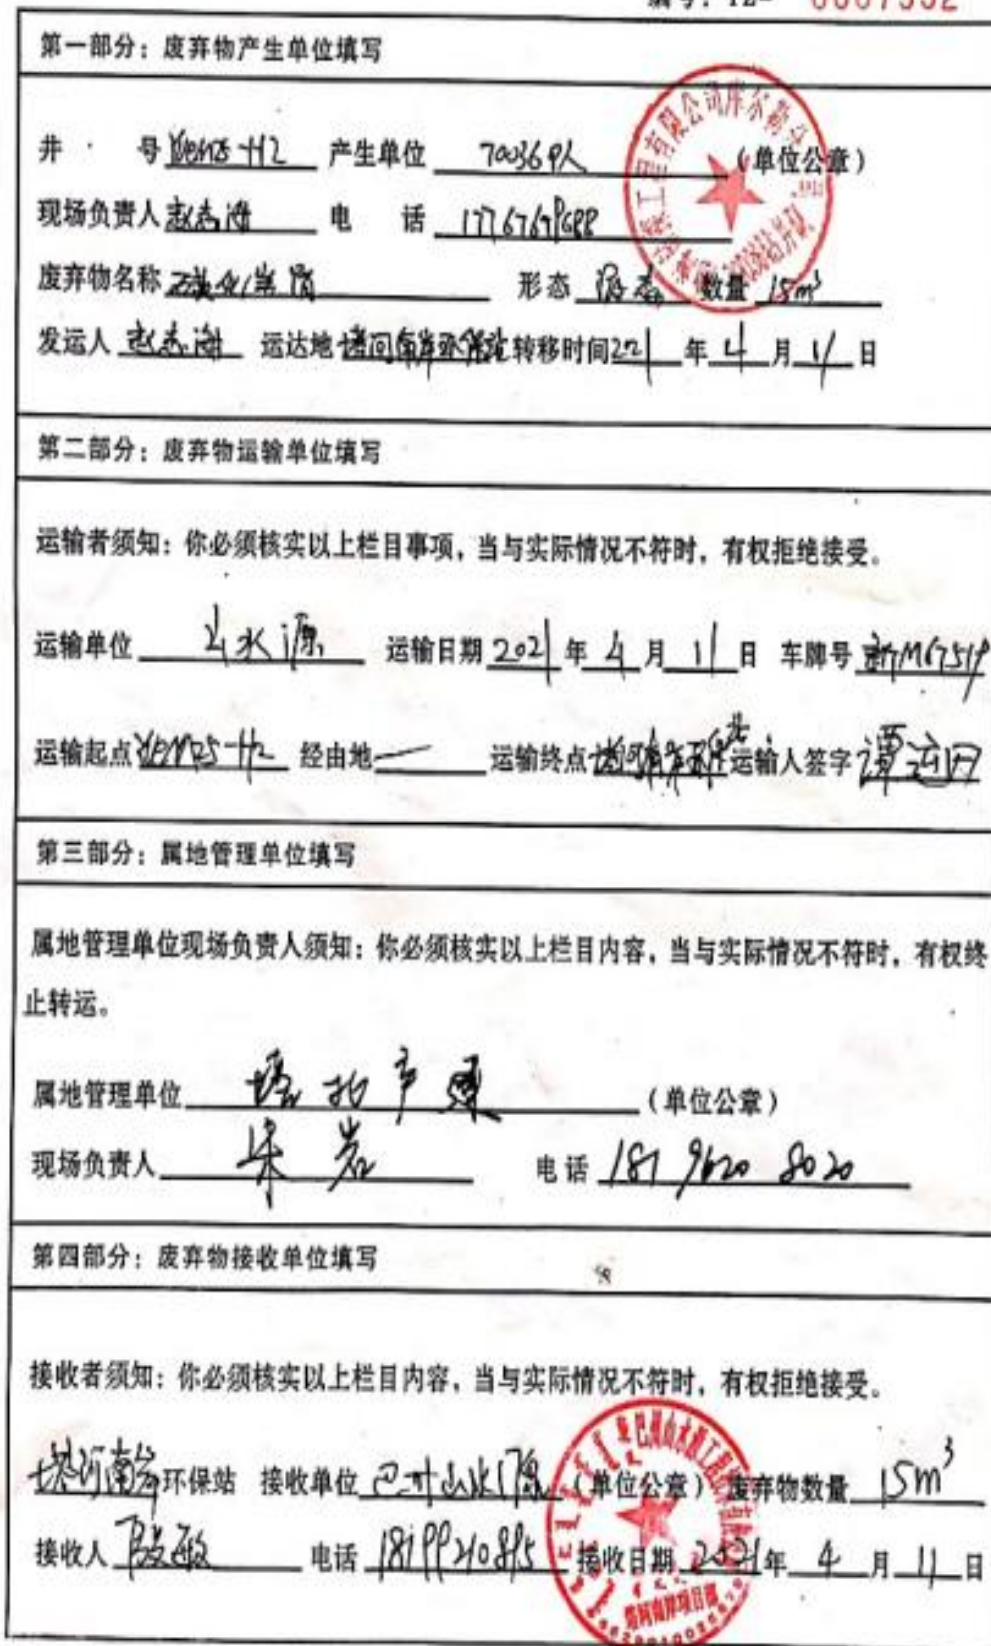 第一部分：废弃物产生单位填写
井 号 -H2 产生单位 70036队 （单位公章）
现场负责人 赵志海 电 话
废弃物名称 磺化岩屑 形态 数量 15m³
发运人 赵志海 运达地 塔河南岸环保站 转移时间 年 4 月 11 日
第二部分：废弃物运输单位填写
运输者须知：你必须核实以上栏目事项，当与实际情况不符时，有权拒绝接受。
运输单位 山水源 运输日期 2021 年 4 月 11 日 车牌号
运输起点 -H2 经由地 — 运输终点 塔河南岸环保站 运输人签字
第三部分：属地管理单位填写
属地管理单位现场负责人须知：你必须核实以上栏目内容，当与实际情况不符时，有权终
止转运。
属地管理单位 （单位公章）
现场负责人 电话 181 9620 8020
第四部分：废弃物接收单位填写
接收者须知：你必须核实以上栏目内容，当与实际情况不符时，有权拒绝接受。
塔河南岸环保站 接收单位 巴州山水源 （单位公章） 废弃物数量 15m³
接收人 电话 18199210895 接收日期 2021年 4 月 11 日
塔河南岸项目部